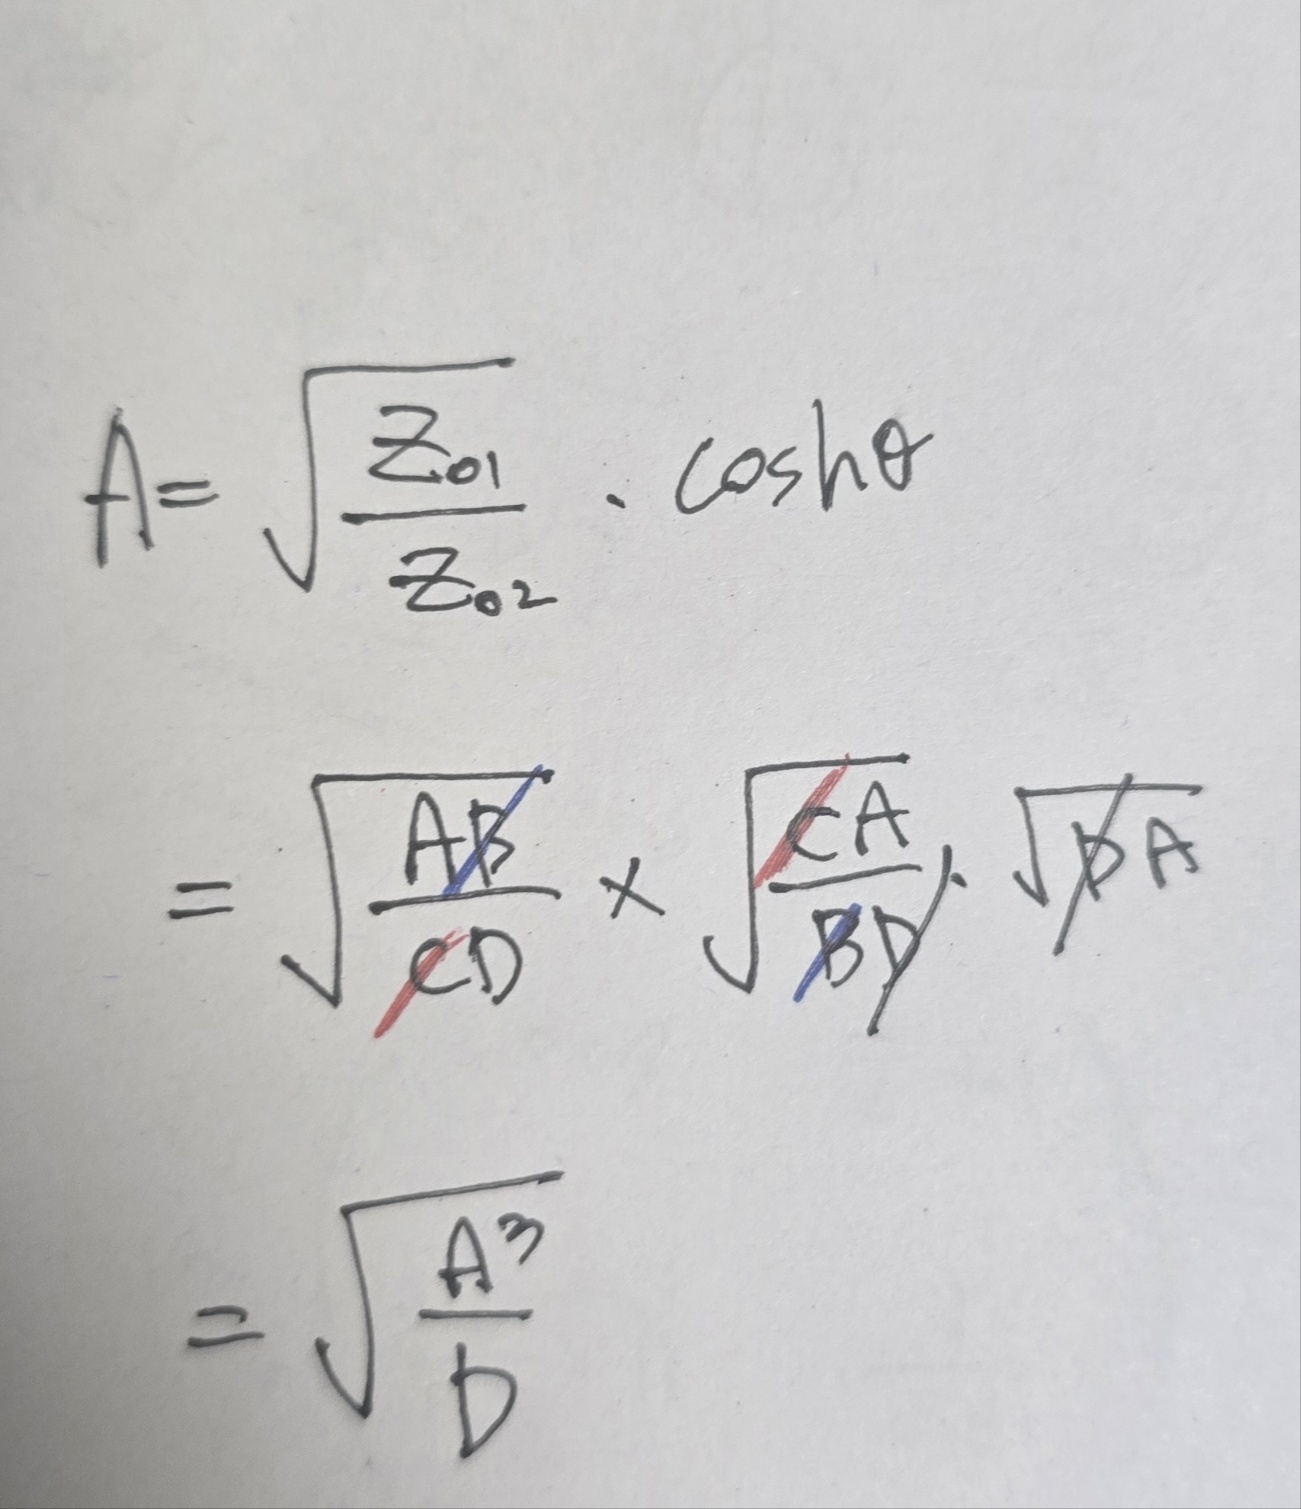 A = √(Z₀₁/Z₀₂) · coshθ
= √(AB/CD) × √(CA/BD) · √(DA)
= √(A³/D)